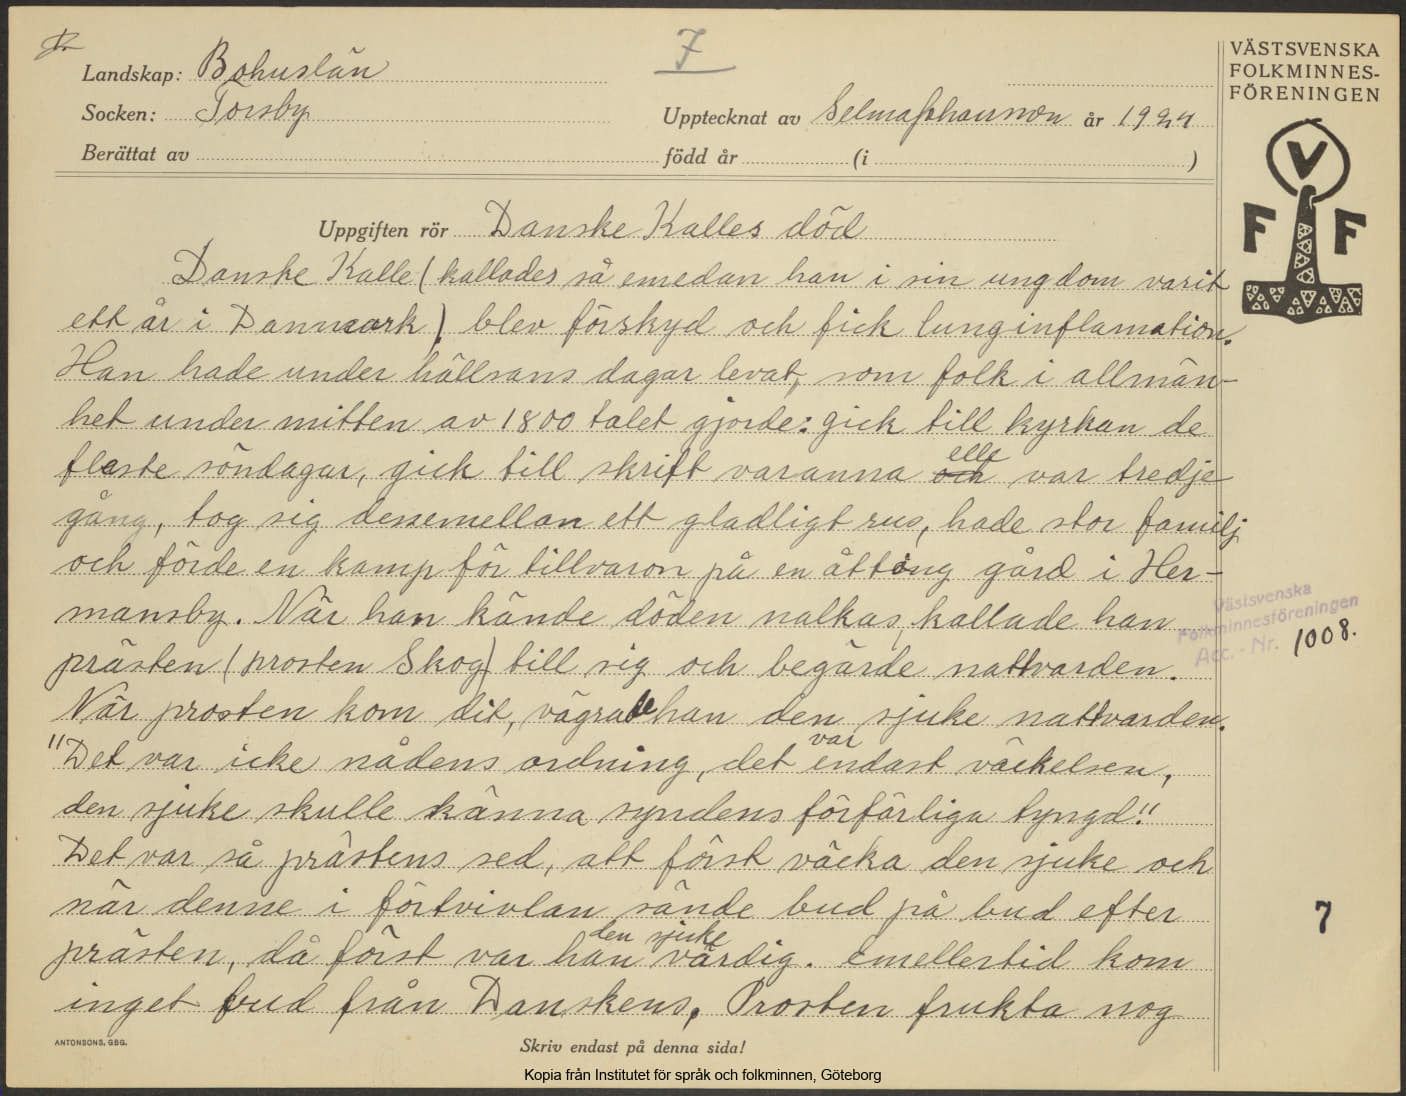 7
Landskap: Bohuslän
Socken: Torsby
Upptecknat av Selma Johansson år 1924
Berättat av född år (i )
VÄSTSVENSKA
FOLKMINNES-
FÖRENINGEN
V
F F
Uppgiften rör Danske Kalles död
Danske Kalle (kallades så emedan han i sin ungdom varit
ett år i Dannmark). blev förskyd och fick lunginflamation.
Han hade under hällsans dagar levat, som folk i allmän-
het under mitten av 1800 talet gjorde: gick till kyrkan de
flaste söndagar, gick till skrift varanna och elle var tredje
gång, tog sig dessemellan ett gladligt rus, hade stor familj
och förde en kamp för tillvaron på en åtting gård i Her-
mansby. När han kände döden nalkas, kallade han
prästen (prosten Skog) till sig och begärde nattvarden.
När prosten kom dit, vägrade han den sjuke nattvarden.
"Det var icke nådens ordning, det var endast väckelsen,
den sjuke skulle känna syndens förfärliga tyngd."
Det var så prästens sed, att först väcka den sjuke och
när denne i förtvivlan sände bud på bud efter
prästen, då först var han den sjuke värdig. emellertid kom
inget bud från Danskens. Prosten frukta nog
Västsvenska
Folkminnesföreningen
Acc. - Nr. 1008.
7
ANTONSONS, GBG.
Skriv endast på denna sida!
Kopia från Institutet för språk och folkminnen, Göteborg